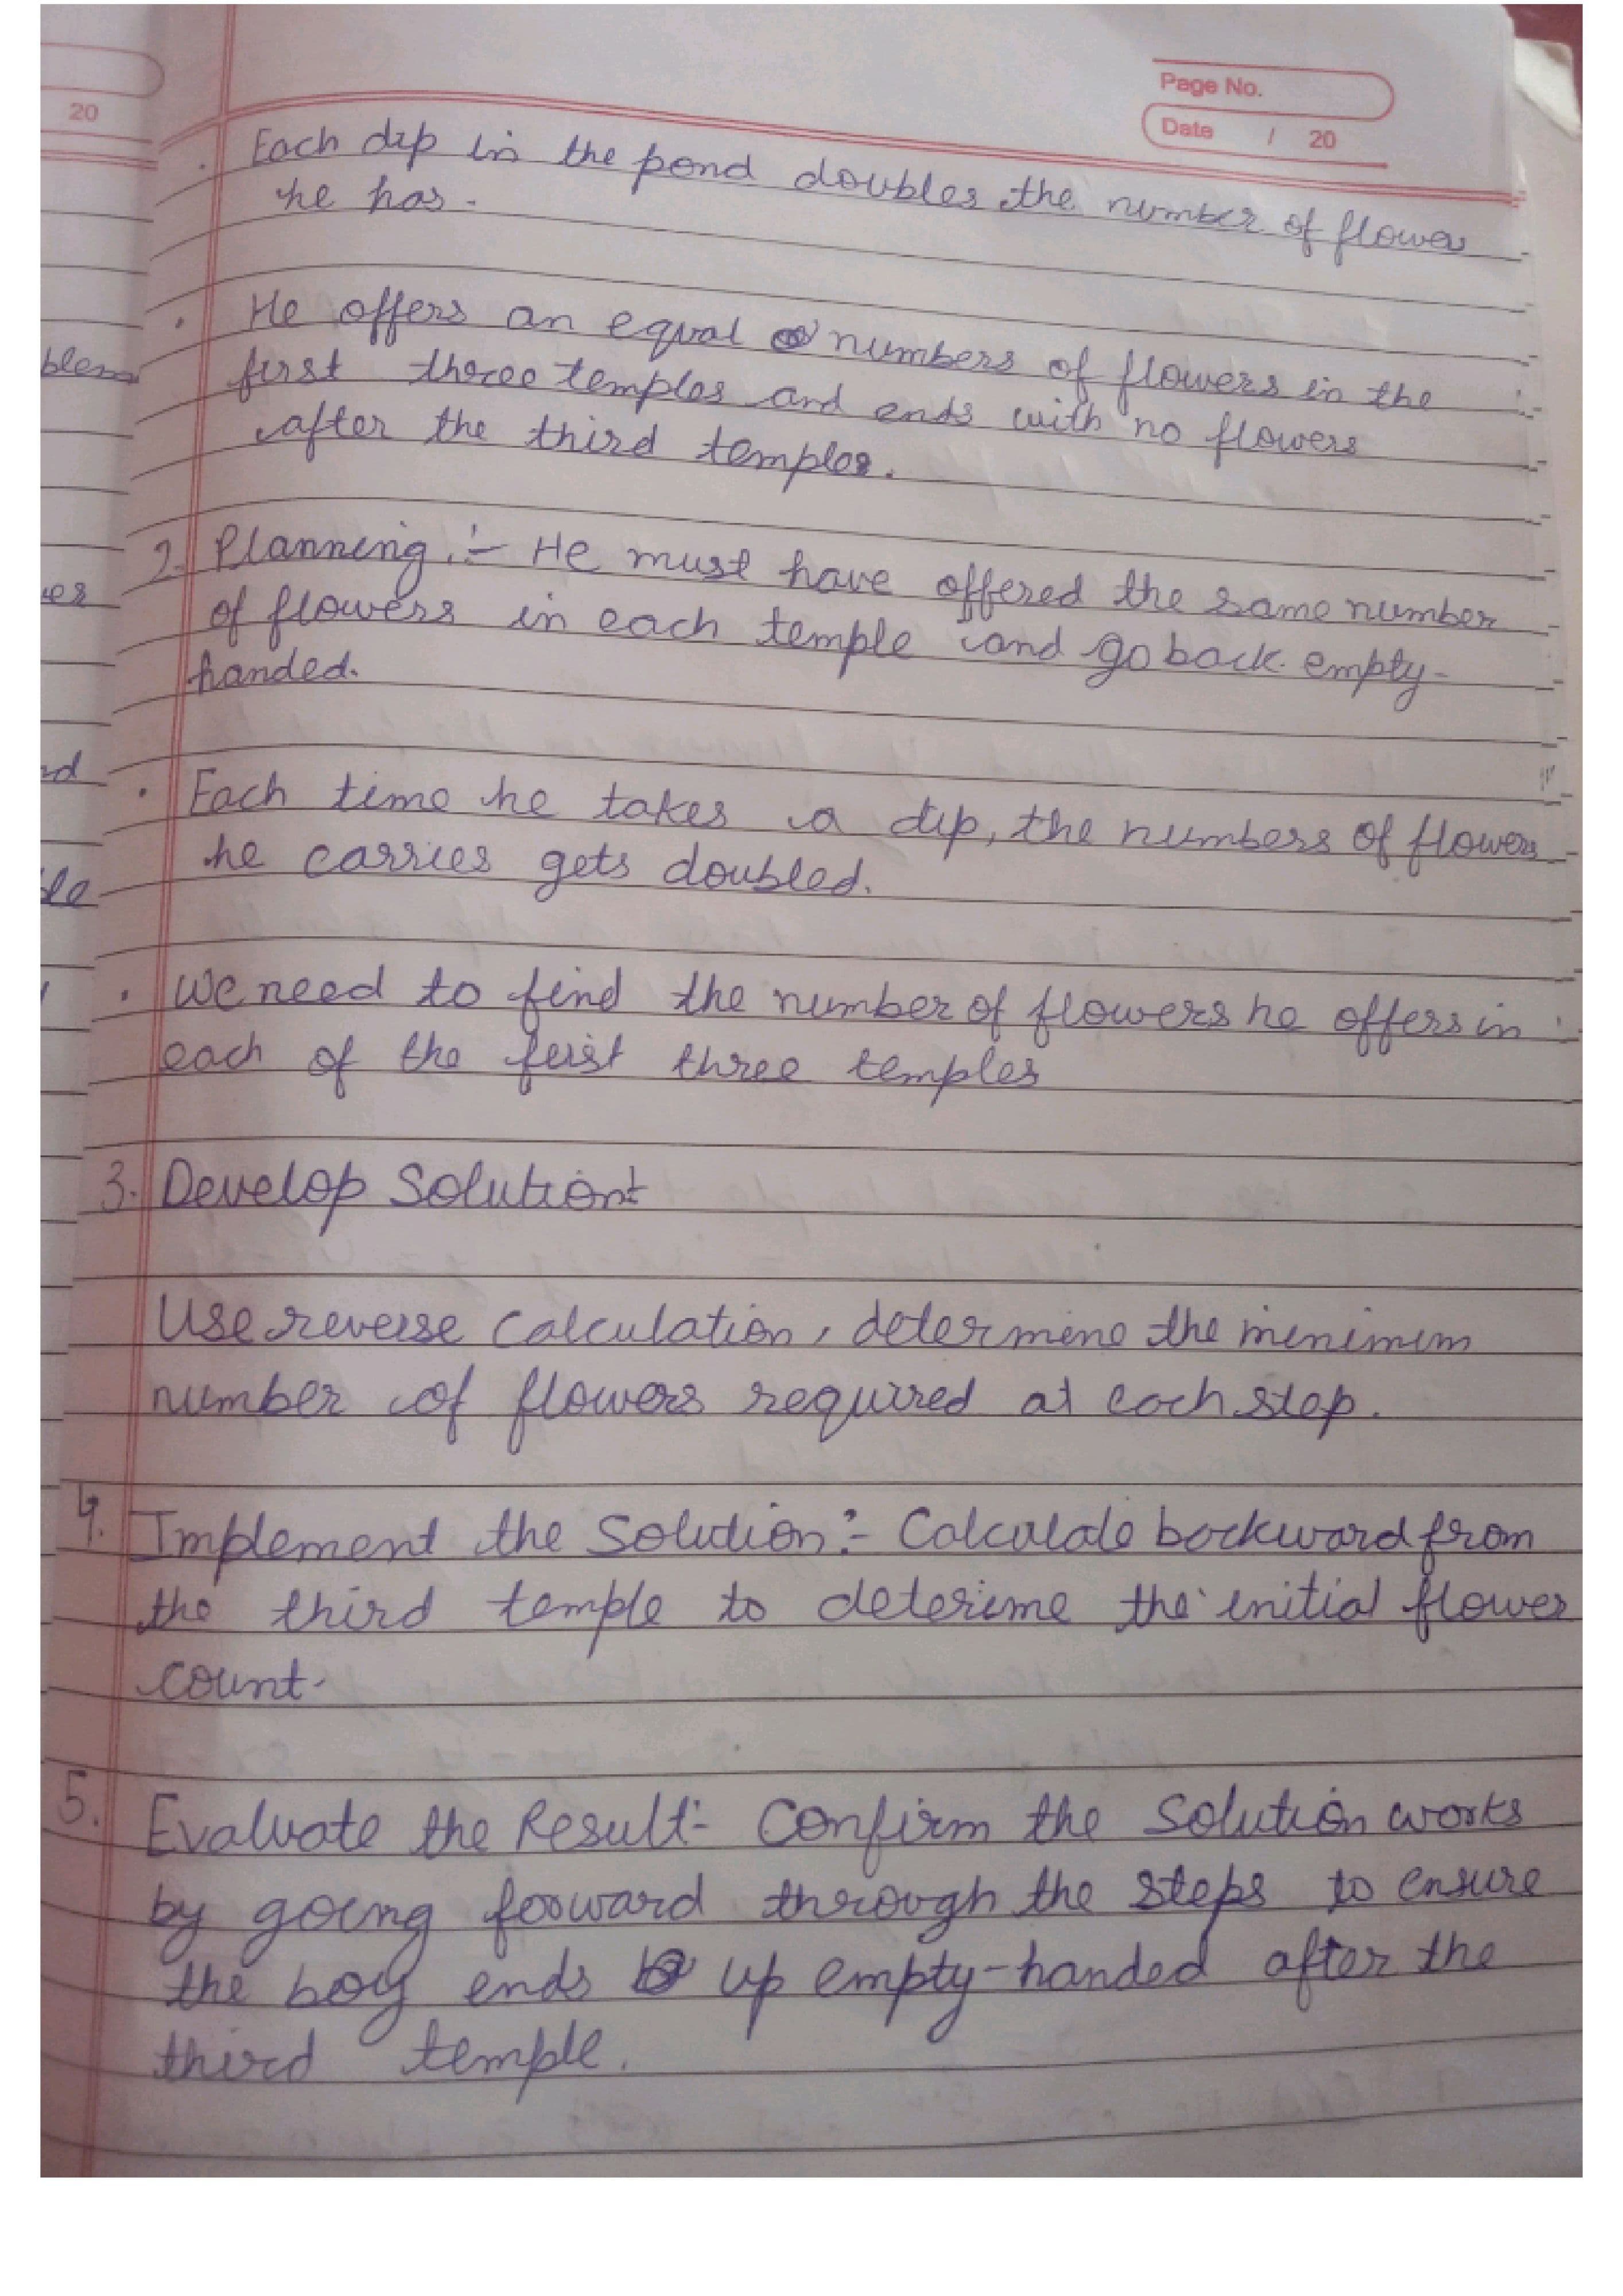 Page No.
Date / 20
20
Each dip in the pond doubles the number of flower
he has.
He offers an equal numbers of flowers in the
first three temples and ends with no flowers
after the third temples.
2. Planning :- He must have offered the same number
of flowers in each temple and go back empty-
handed.
Each time he takes a dip, the numbers of flowers
he carries gets doubled.
We need to find the number of flowers he offers in
each of the first three temples
3. Develop Solution:-
Use reverse calculation, determine the minimum
number of flowers required at each step.
4. Implement the Solution :- Calculate backward from
the third temple to deterime the initial flower
count.
5. Evaluate the Result:- Confirm the Solution works
by going forward through the steps to ensure
the boy ends up empty-handed after the
third temple.